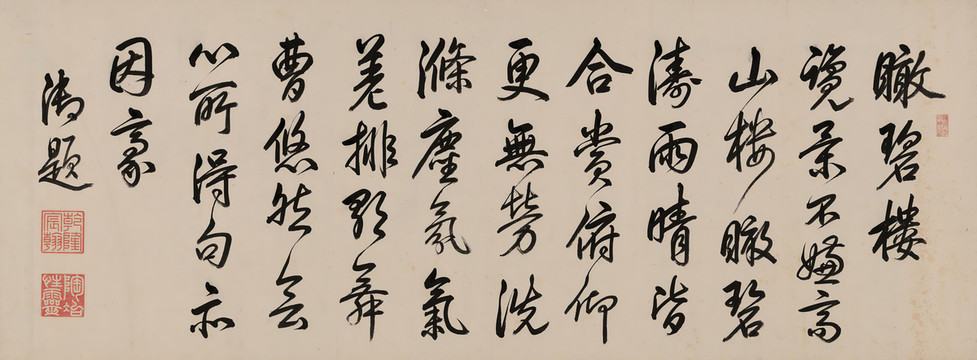 瞰碧樓
覽景不嫌高
山樓瞰碧
濤雨晴皆
合賞俯仰
更無勞洗
滌塵氛氣
差排歌舞
曹悠然會
心所得句亦
因豪
御題
乾隆宸翰
陶冶性靈